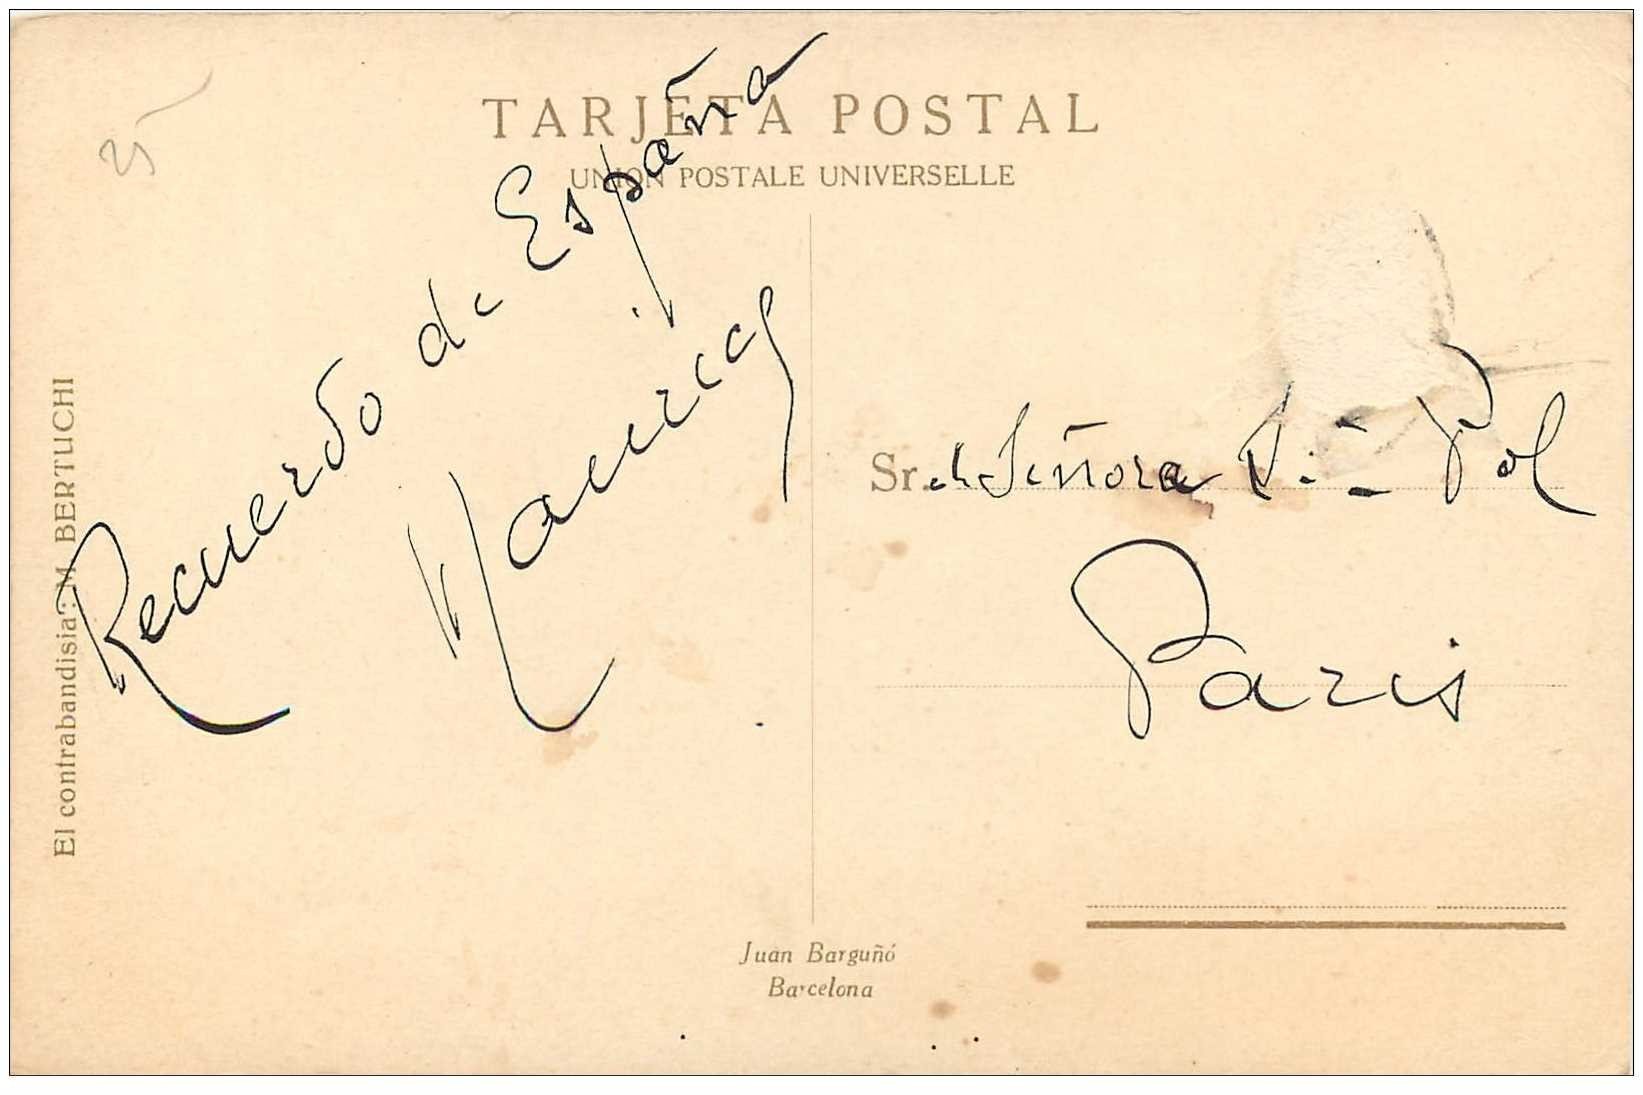 25
TARJETA POSTAL
UNION POSTALE UNIVERSELLE
El contrabandisia: M. BERTUCHI
Recuerdo de España
Sr. Señora Pol
Paris
Juan Barguñó
Barcelona